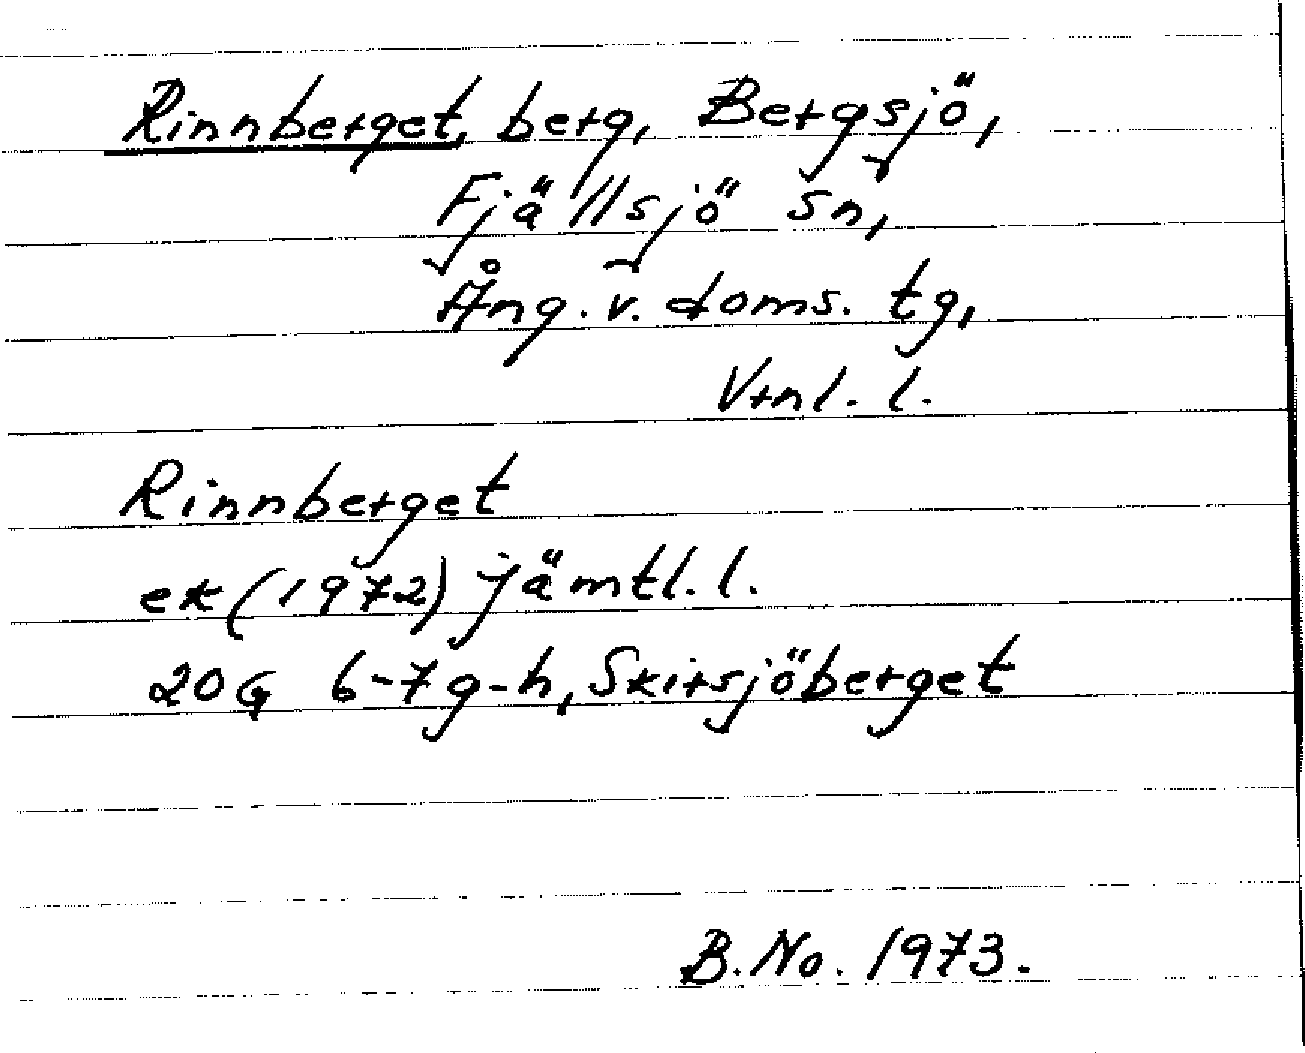 Rinnberget, berg, Bergsjö,
Fjällsjö sn,
Ång. v. doms. tg,
Vrnl. l.
Rinnberget
ek (1972) Jämtl. l.
20G 6-7g-h, Skirsjöberget
B. No. 1973.